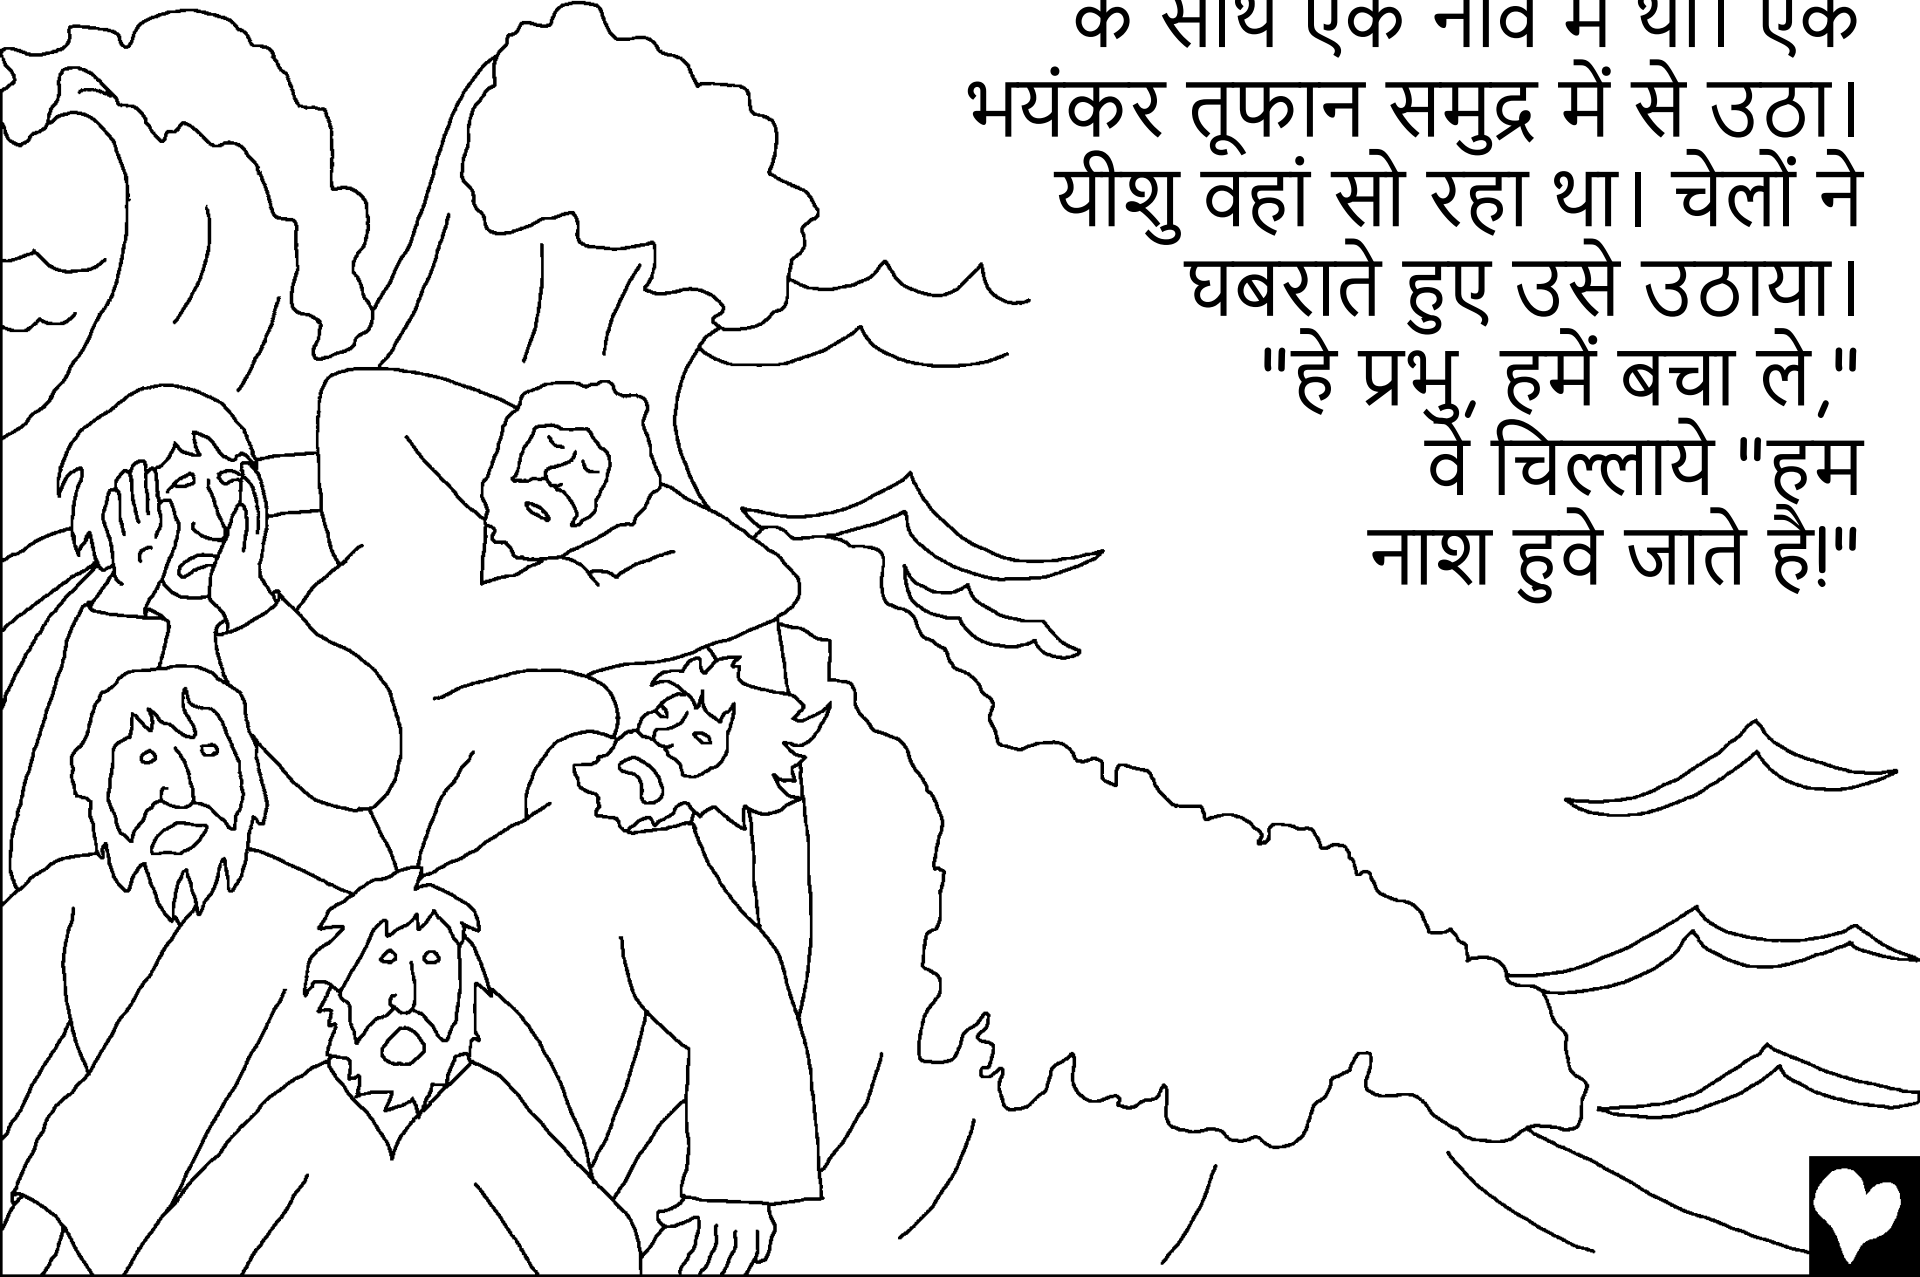 के साथ एक नाव में था। एक
भयंकर तूफान समुद्र में से उठा।
यीशु वहां सो रहा था। चेलों ने
घबराते हुए उसे उठाया।
"हे प्रभु, हमें बचा ले,"
वे चिल्लाये "हम
नाश हुवे जाते है!"